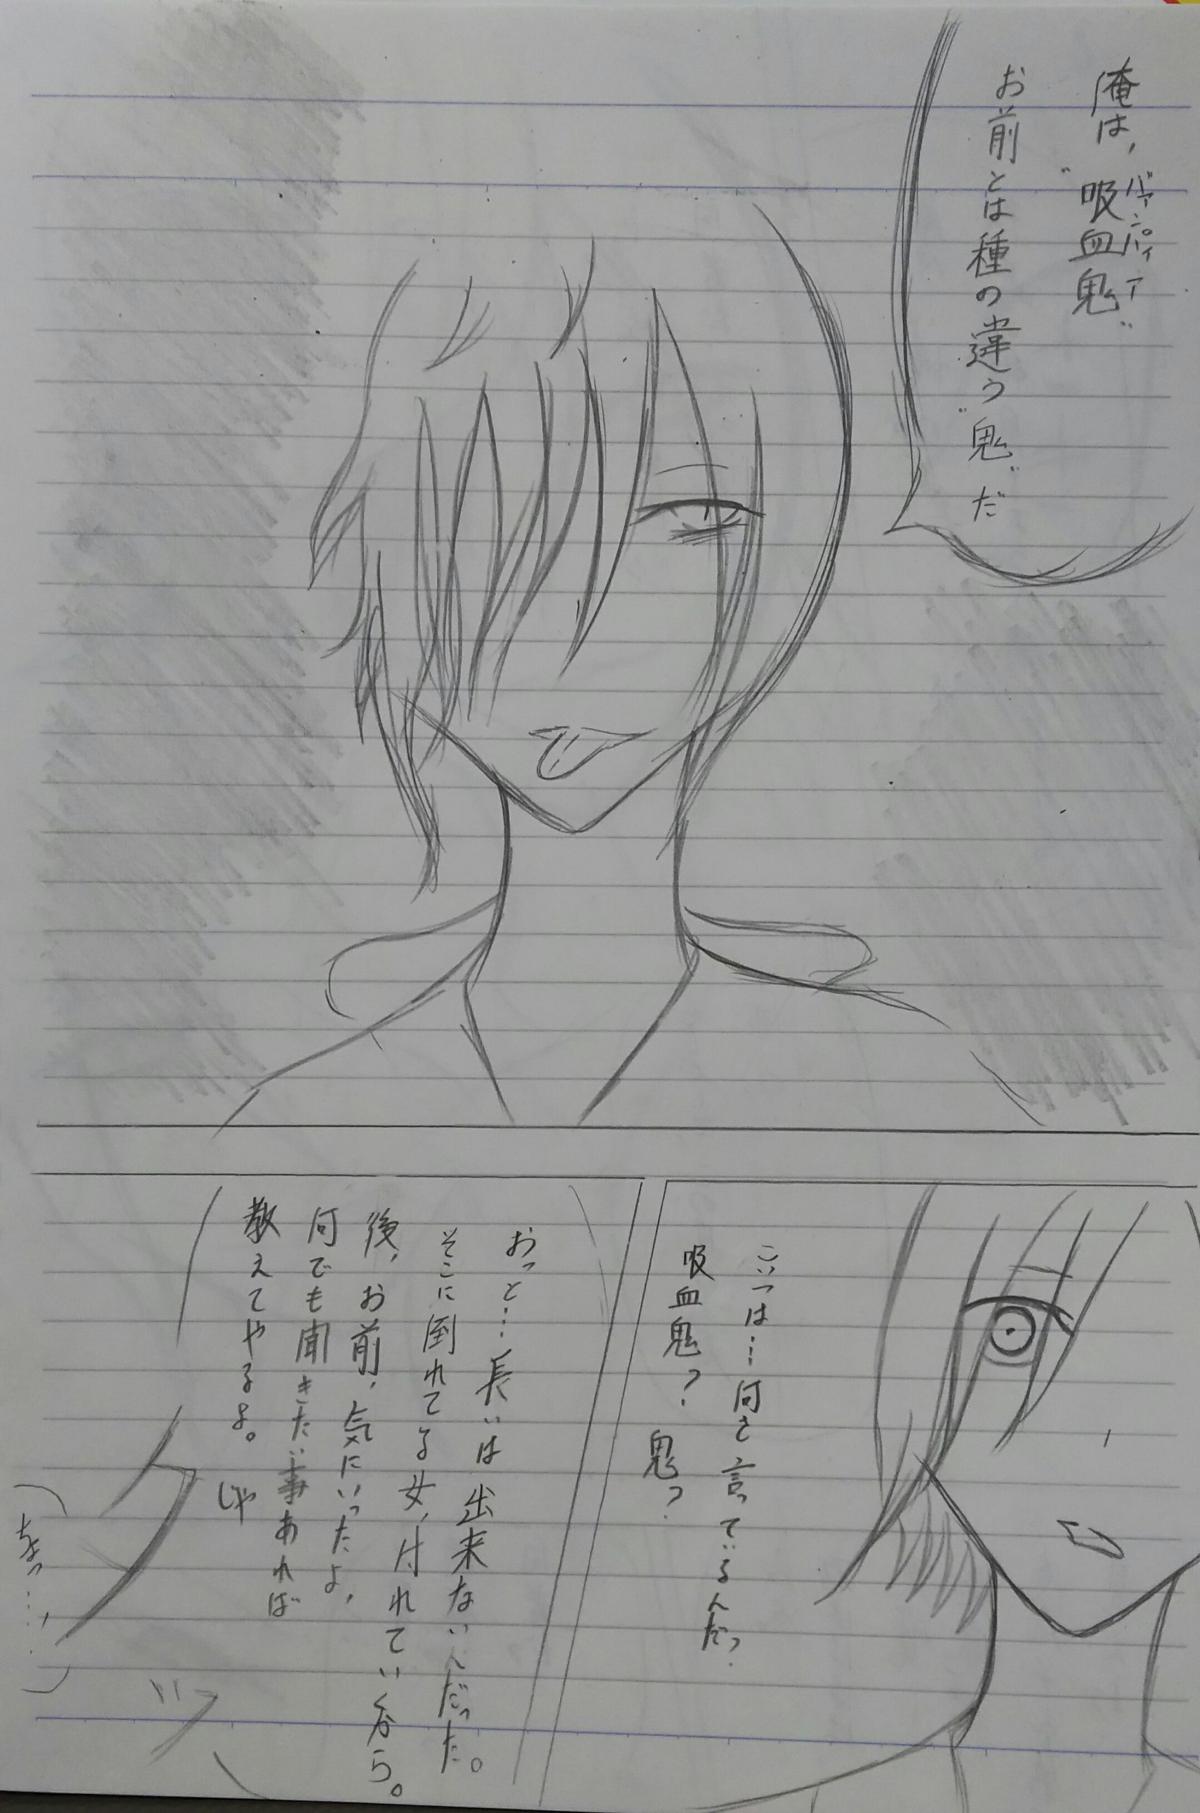 俺は、
"吸血鬼"
バァンパイア
お前とは種の違う"鬼"だ
こいつは…何を言っているんだ?
吸血鬼?
鬼?
おっと…長いは出来ないんだった。
そこに倒れてる女、付れていくから。
後、お前、気にいったよ、
何でも聞きたい事あれば
教えてやるよ。
じゃ
タッ
ちょっ…、